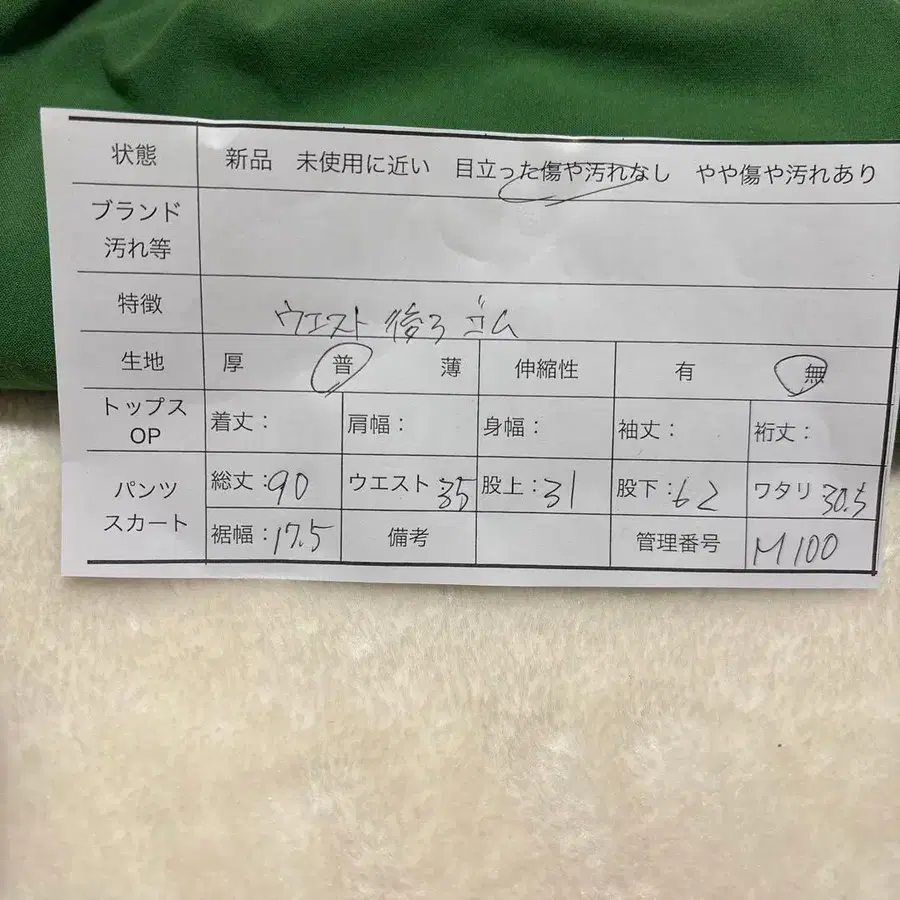 状態 新品 未使用に近い 目立った傷や汚れなし やや傷や汚れあり
ブランド
汚れ等
特徴 ウエスト 後ろ ゴム
生地 厚 普 薄 伸縮性 有 無
トップス
OP 着丈: 肩幅: 身幅: 袖丈: 裄丈:
パンツ
スカート 総丈:90 ウエスト:35 股上:31 股下:62 ワタリ:30.5
裾幅:17.5 備考 管理番号 M100